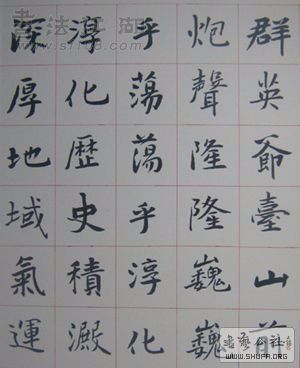 群英爺臺山前
炮聲隆隆巍巍
乎蕩蕩乎淳化
淳化歷史積澱
深厚地域氣運
書法江湖
書藝公社
WWW.SHUFA.ORG